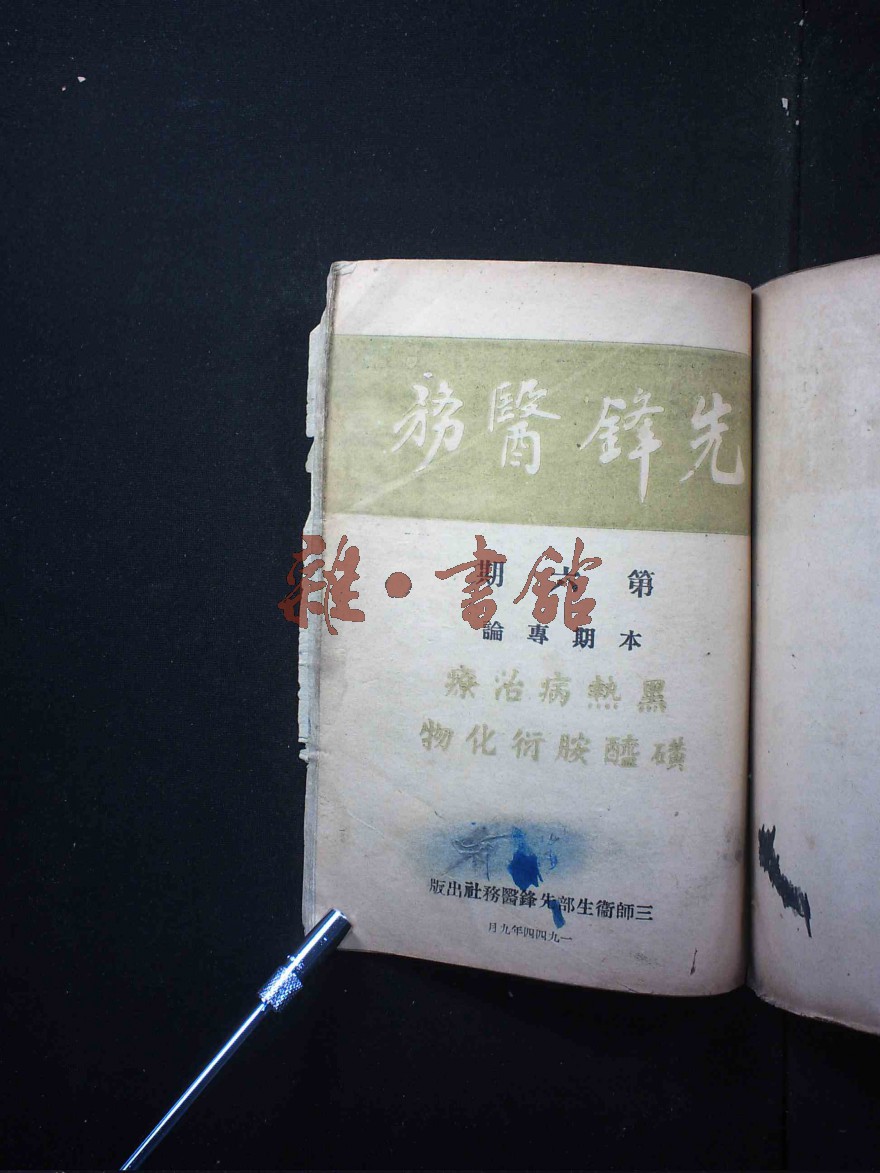 先鋒醫務
雜·書館
第六期
本期專論
黑熱病治療
磺醯胺衍化物
三師衛生部先鋒醫務社出版
一九四四年九月